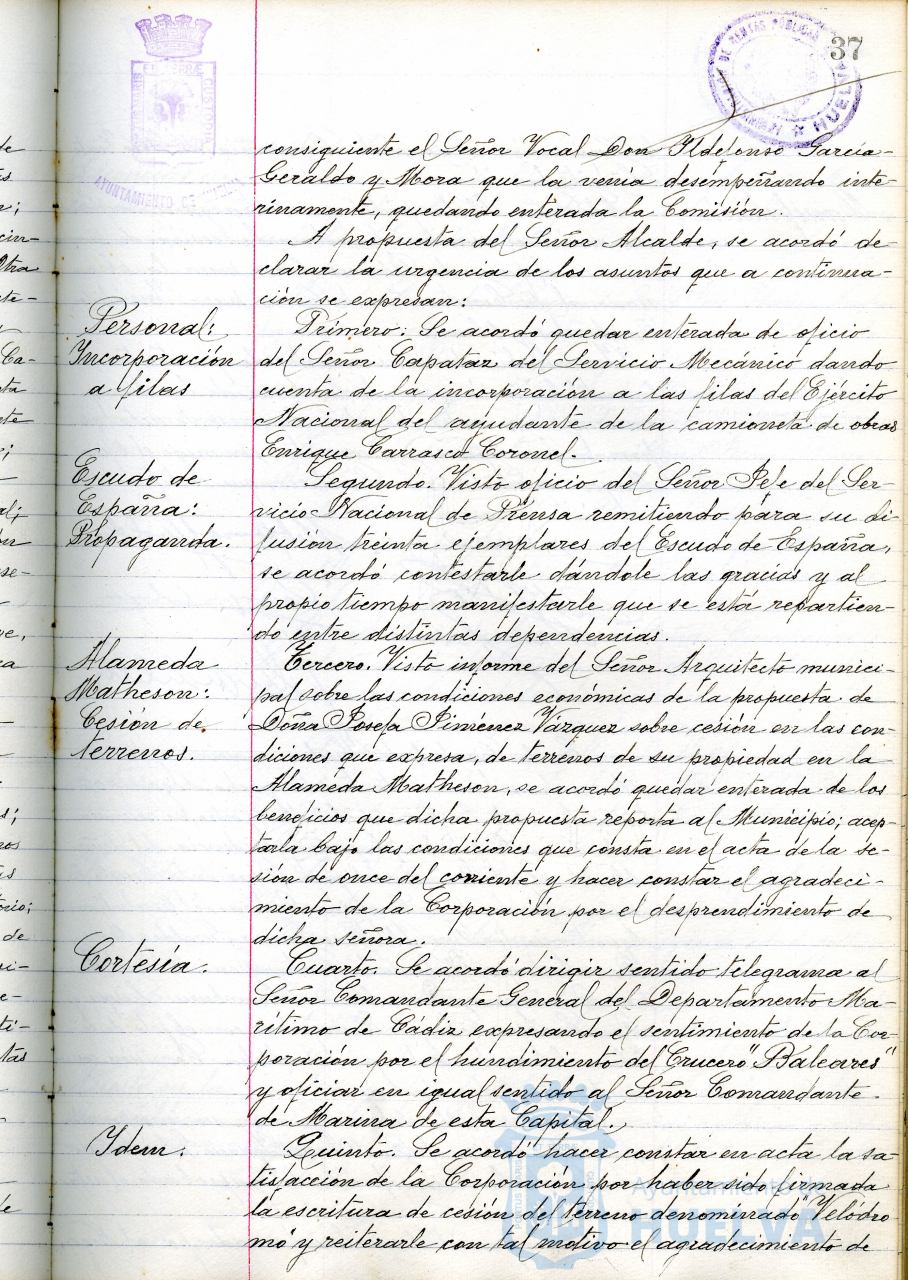 37
consiguiente el Señor Vocal Don Ildefonso García-
Geraldo y Mora que la venía desempeñando inte-
rinamente, quedando enterada la Comisión.
A propuesta del Señor Alcalde, se acordó de-
clarar la urgencia de los asuntos que a continua-
ción se expresan:
Personal:
Incorporación
a filas
Primero: Se acordó quedar enterada de oficio
del Señor Capataz del Servicio Mecánico dando
cuenta de la incorporación a las filas del Ejército
Nacional del ayudante de la camioneta de obras
Enrique Carrasco Coronel.
Escudo de
España:
Propaganda.
Segundo. Visto oficio del Señor Jefe del Ser-
vicio Nacional de Prensa remitiendo para su di-
fusión treinta ejemplares del Escudo de España,
se acordó contestarle dándole las gracias y al
propio tiempo manifestarle que se está repartien-
do entre distintas dependencias.
Alameda
Matheson:
Cesión de
terrenos.
Tercero. Visto informe del Señor Arquitecto munici-
pal sobre las condiciones económicas de la propuesta de
Doña Josefa Jiménez Vázquez sobre cesión en las con-
diciones que expresa, de terrenos de su propiedad en la
Alameda Matheson, se acordó quedar enterada de los
beneficios que dicha propuesta reporta al Municipio; acep-
tarla bajo las condiciones que consta en el acta de la se-
sión de once del corriente y hacer constar el agradeci-
miento de la Corporación por el desprendimiento de
dicha señora.
Cortesía.
Cuarto. Se acordó dirigir sentido telegrama al
Señor Comandante General del Departamento Ma-
rítimo de Cádiz expresando el sentimiento de la Cor-
poración por el hundimiento del Crucero "Baleares"
y oficiar en igual sentido al Señor Comandante
de Marina de esta Capital.
Ydem.
Quinto. Se acordó hacer constar en acta la sa-
tisfacción de la Corporación por haber sido firmada
la escritura de cesión del terreno denominado "Velódro-
mo" y reiterarle con tal motivo el agradecimiento de
AYUNTAMIENTO DE HUELVA
DE RENTAS PÚBLICAS
HUELVA
Ayuntamiento
HUELVA